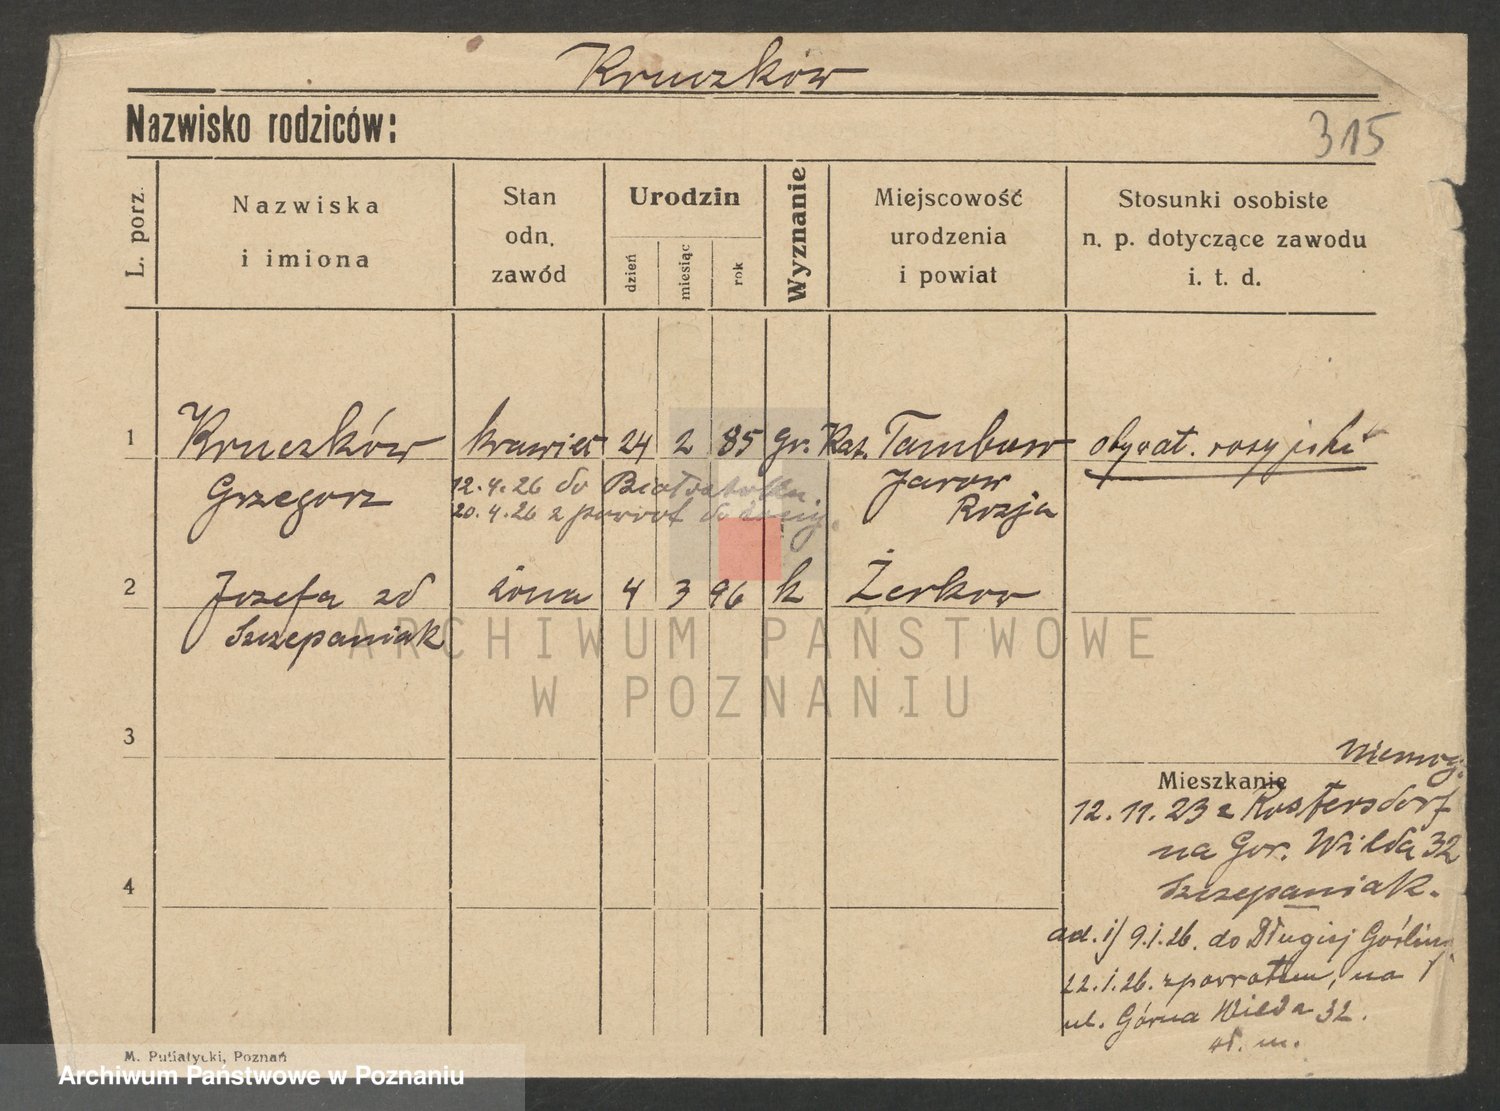 Kruczków
Nazwisko rodziców:
315
L. porz.
Nazwiska
i imiona
Stan
odn.
zawód
Urodzin
dzień
miesiąc
rok
Wyznanie
Miejscowość
urodzenia
i powiat
Stosunki osobiste
n. p. dotyczące zawodu
i. t. d.
1 Kruczków krawiec 24 2 85 gr. Kat. Tambow obywat. rosyjski
Grzegorz
12.4.26 do Białegostoku
Jarow
20.4.26 z powrot do
Rosja
2 Jozefa zd żona 4 3 96 k Żerkow
Szczepaniak
ARCHIWUM PAŃSTWOWE
W POZNANIU
3
Niemcy.
Mieszkanie
12.11.23 z Kostersdorf
na Gor. Wilda 32
Szczepaniak.
4
ad. 1/ 9.1.26. do Długiej Gośliny
22.1.26. z powrotem, na
ul. Górna Wilda 32.
M. Putiatycki, Poznań
Archiwum Państwowe w Poznaniu